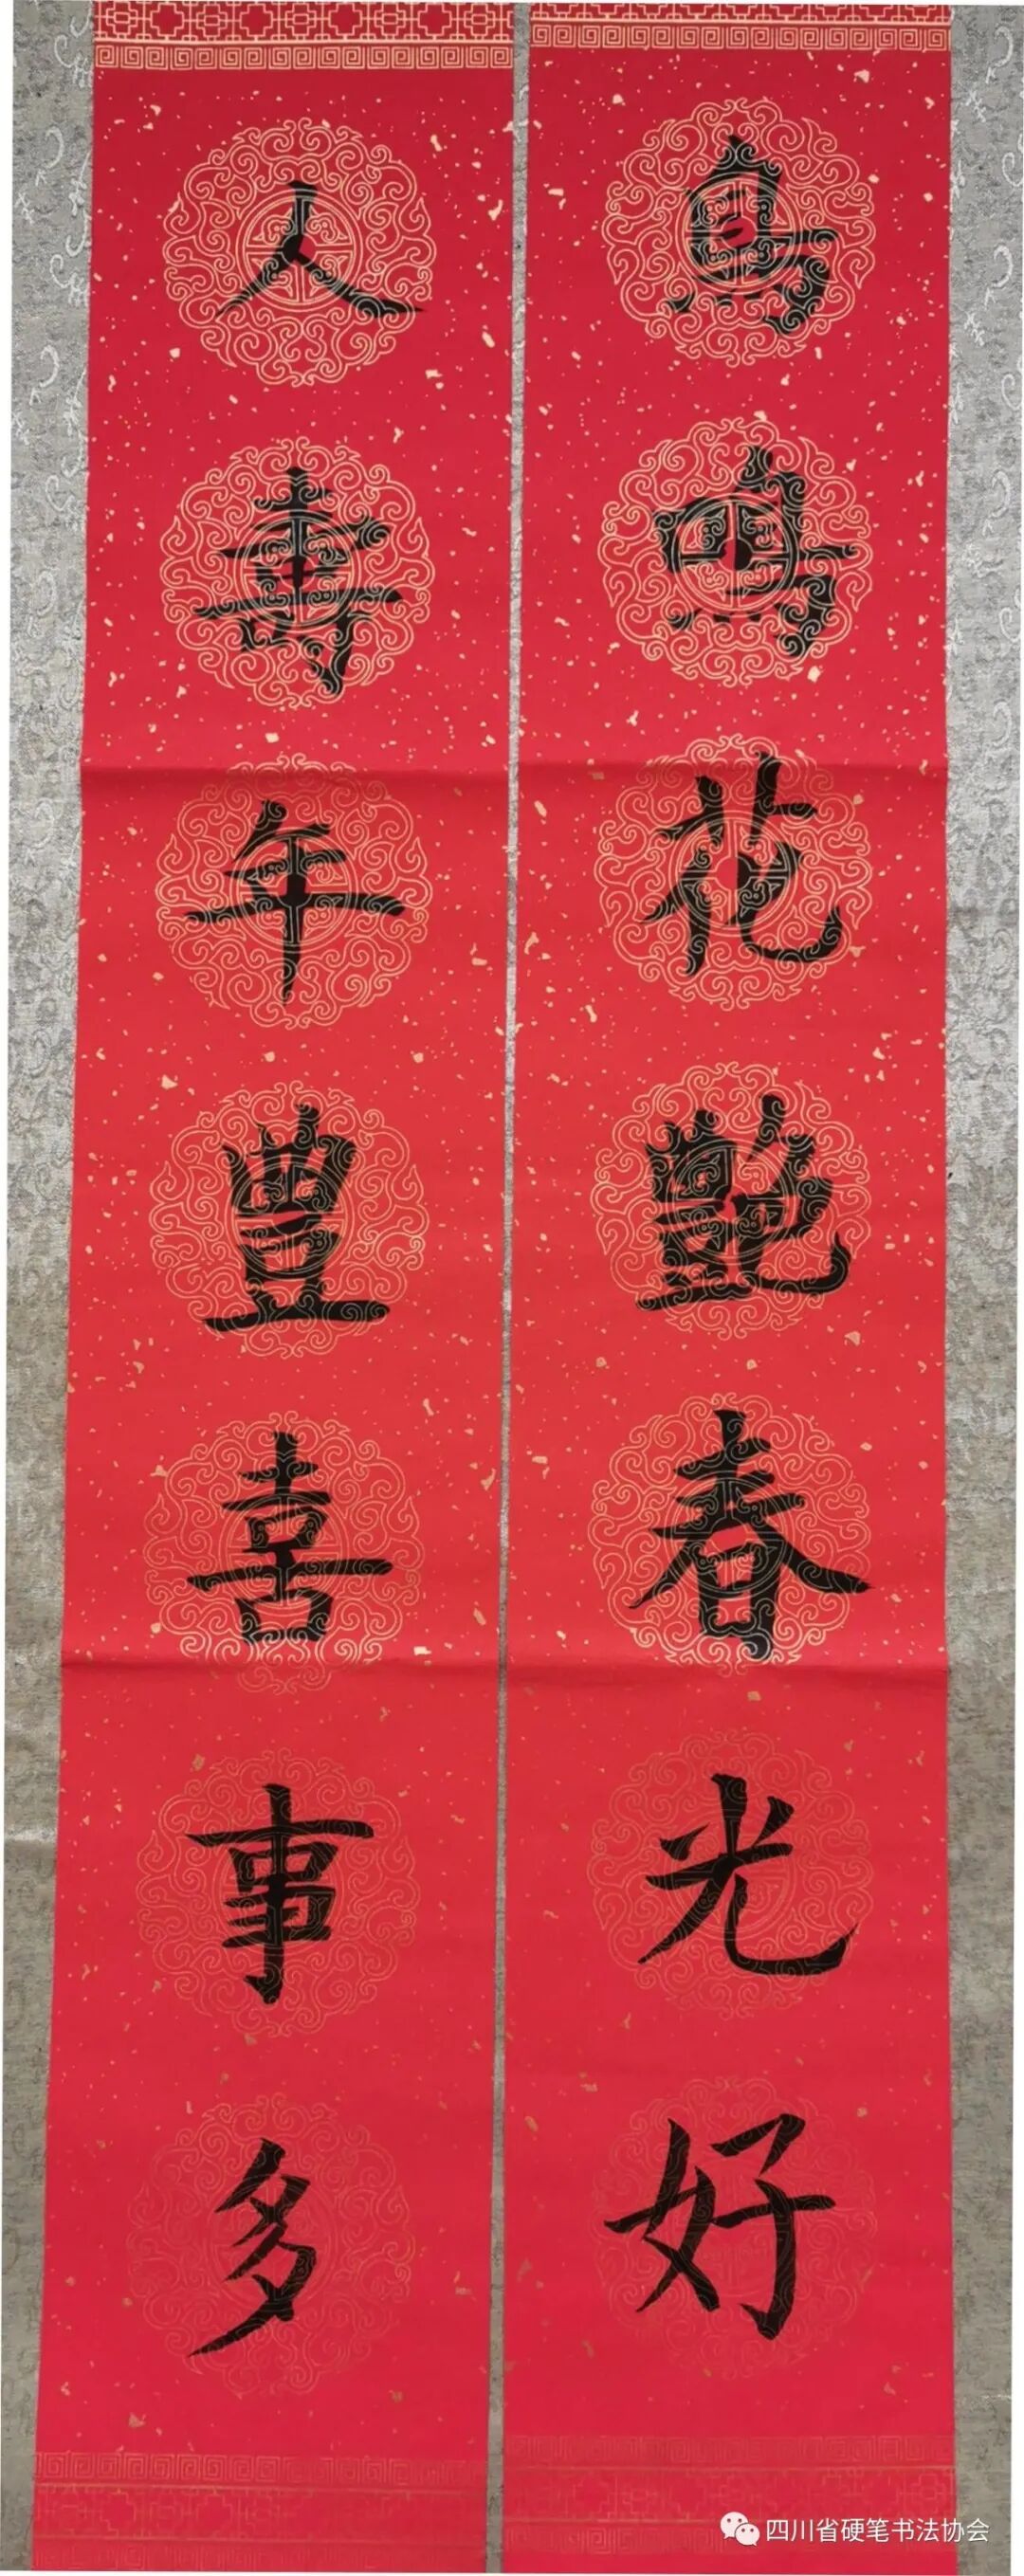 鳥鳴花艶春光好
人壽年豊喜事多
四川省硬笔书法协会